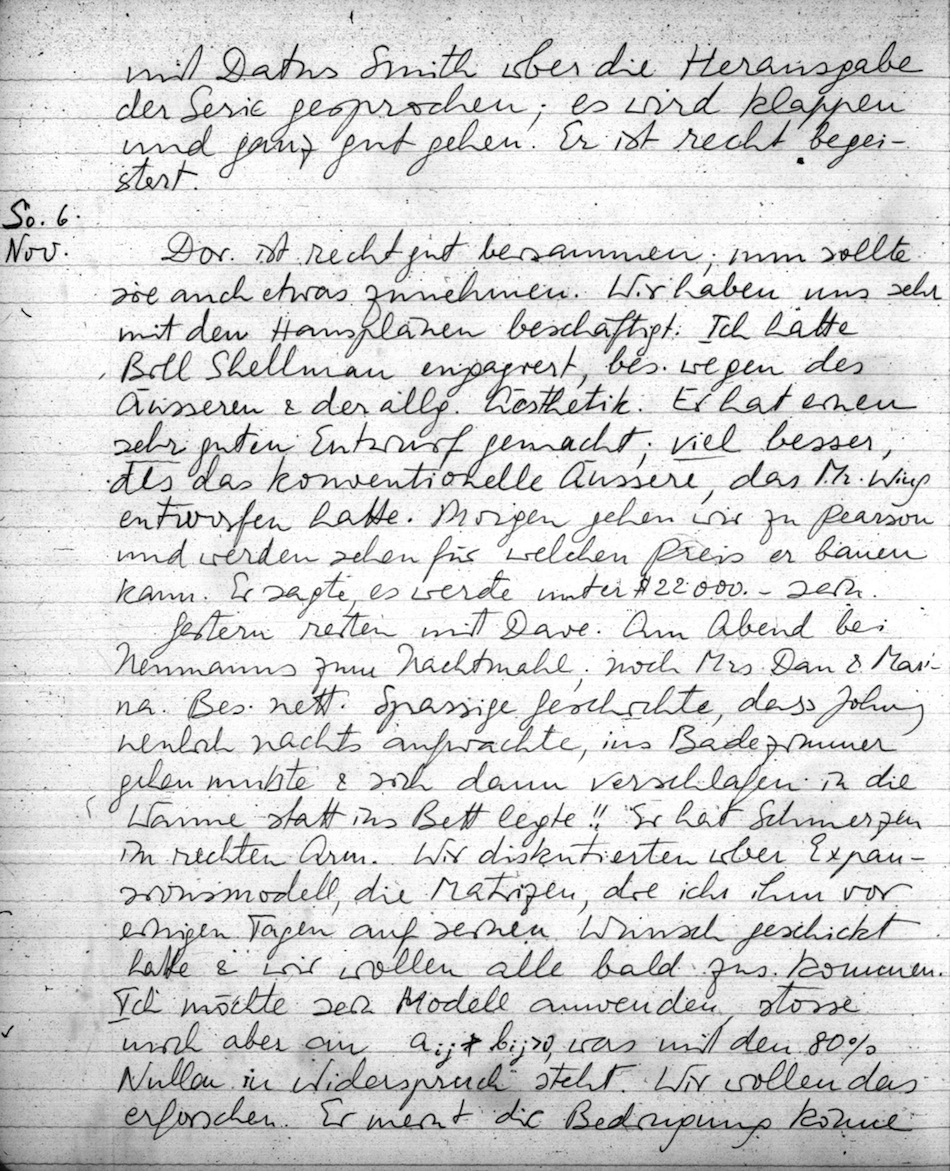 mit Datus Smith über die Herausgabe
der Serie gesprochen; es wird klappen
und ganz gut gehen. Er ist recht begei-
stert.
So. 6.
Nov.
Dor. ist recht gut beisammen; nun sollte
sie auch etwas zunehmen. Wir haben uns sehr
mit den Hausplänen beschäftigt. Ich hatte
Bill Shellman engagiert, bes. wegen des
Äusseren & der allg. Ästhetik. Er hat einen
sehr guten Entwurf gemacht; viel besser,
als das konventionelle Äussere, das Mr. Wing
entworfen hatte. Morgen gehen wir zu Pearson
und werden sehen für welchen Preis er bauen
kann. Er sagte, es werde unter $22000.– sein.
Gestern reiten mit Dave. Am Abend bei
Neumanns zum Nachtmahl; noch Mrs. Dan & Mari-
na. Bes. nett. Spassige Geschichte, dass Johny
neulich nachts aufwachte, ins Badezimmer
gehen musste & sich dann verschlafen in die
Wanne statt ins Bett legte!! Er hat Schmerzen
im rechten Arm. Wir diskutierten über Expan-
sionsmodell, die Matrizen, die ich ihm vor
einigen Tagen auf seinen Wunsch geschickt
hatte & wir wollen alle bald zus. kommen.
Ich möchte sein Modell anwenden, stosse
mich aber an aij + bij>0, was mit den 80%
Nullen in Widerspruch steht. Wir wollen das
erforschen. Er meint die Bedingung könne